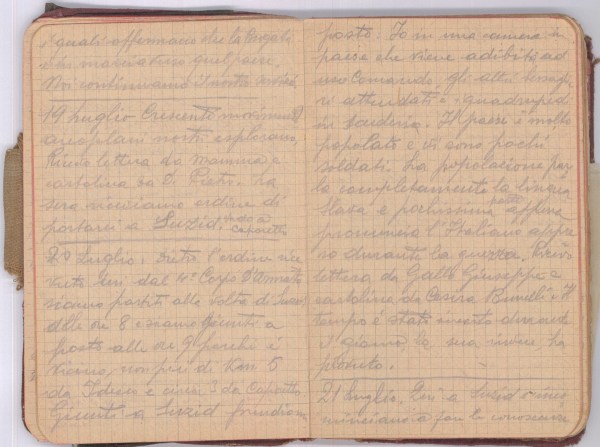 i quali affermano che la
che marciavano quel paese.
Noi continuiamo il nostro
19 Luglio Crescente movimento
aeroplani nostri esplorano
Ricevo lettera da mamma e
cartolina da D. Pietro. La
sera riceviamo ordine di
portarci a Suzid. vado a Caporetto
20 Luglio: Dietro l'ordine rice
vuto ieri dal 4° Corpo D'Armata
siamo partiti alla volta di Suzid
alle ore 8 e siamo giunti a
posto alle ore 9 perché è
vicino, non più di Km 5
da Idresco e circa 2 da Caporetto
Giunti a Suzid prendiamo
posto. Io in una camera in
paese che viene adibita ad
uso Comando, gli altri bersaglie
ri attendati e i quadrupedi
in scuderia. Il paese è molto
popolato e vi sono pochi
soldati. La popolazione par
la completamente la lingua
slava e pochissima gente appena
pronuncia l'Italiano appre
so durante la guerra. Ricevo
lettera da Galli Giuseppe e
cartolina da Cesira Bunelli. Il
tempo è stato incerto durante
il giorno la sera invece ha
piovuto.
21 Luglio. Qui a Suzid
minciano a fare la conoscenza